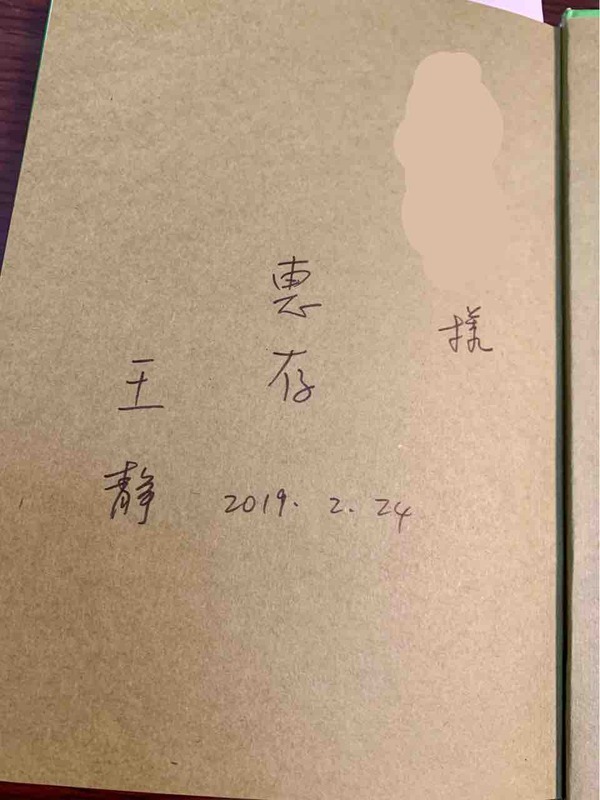 様
惠存
王静
2019.2.24